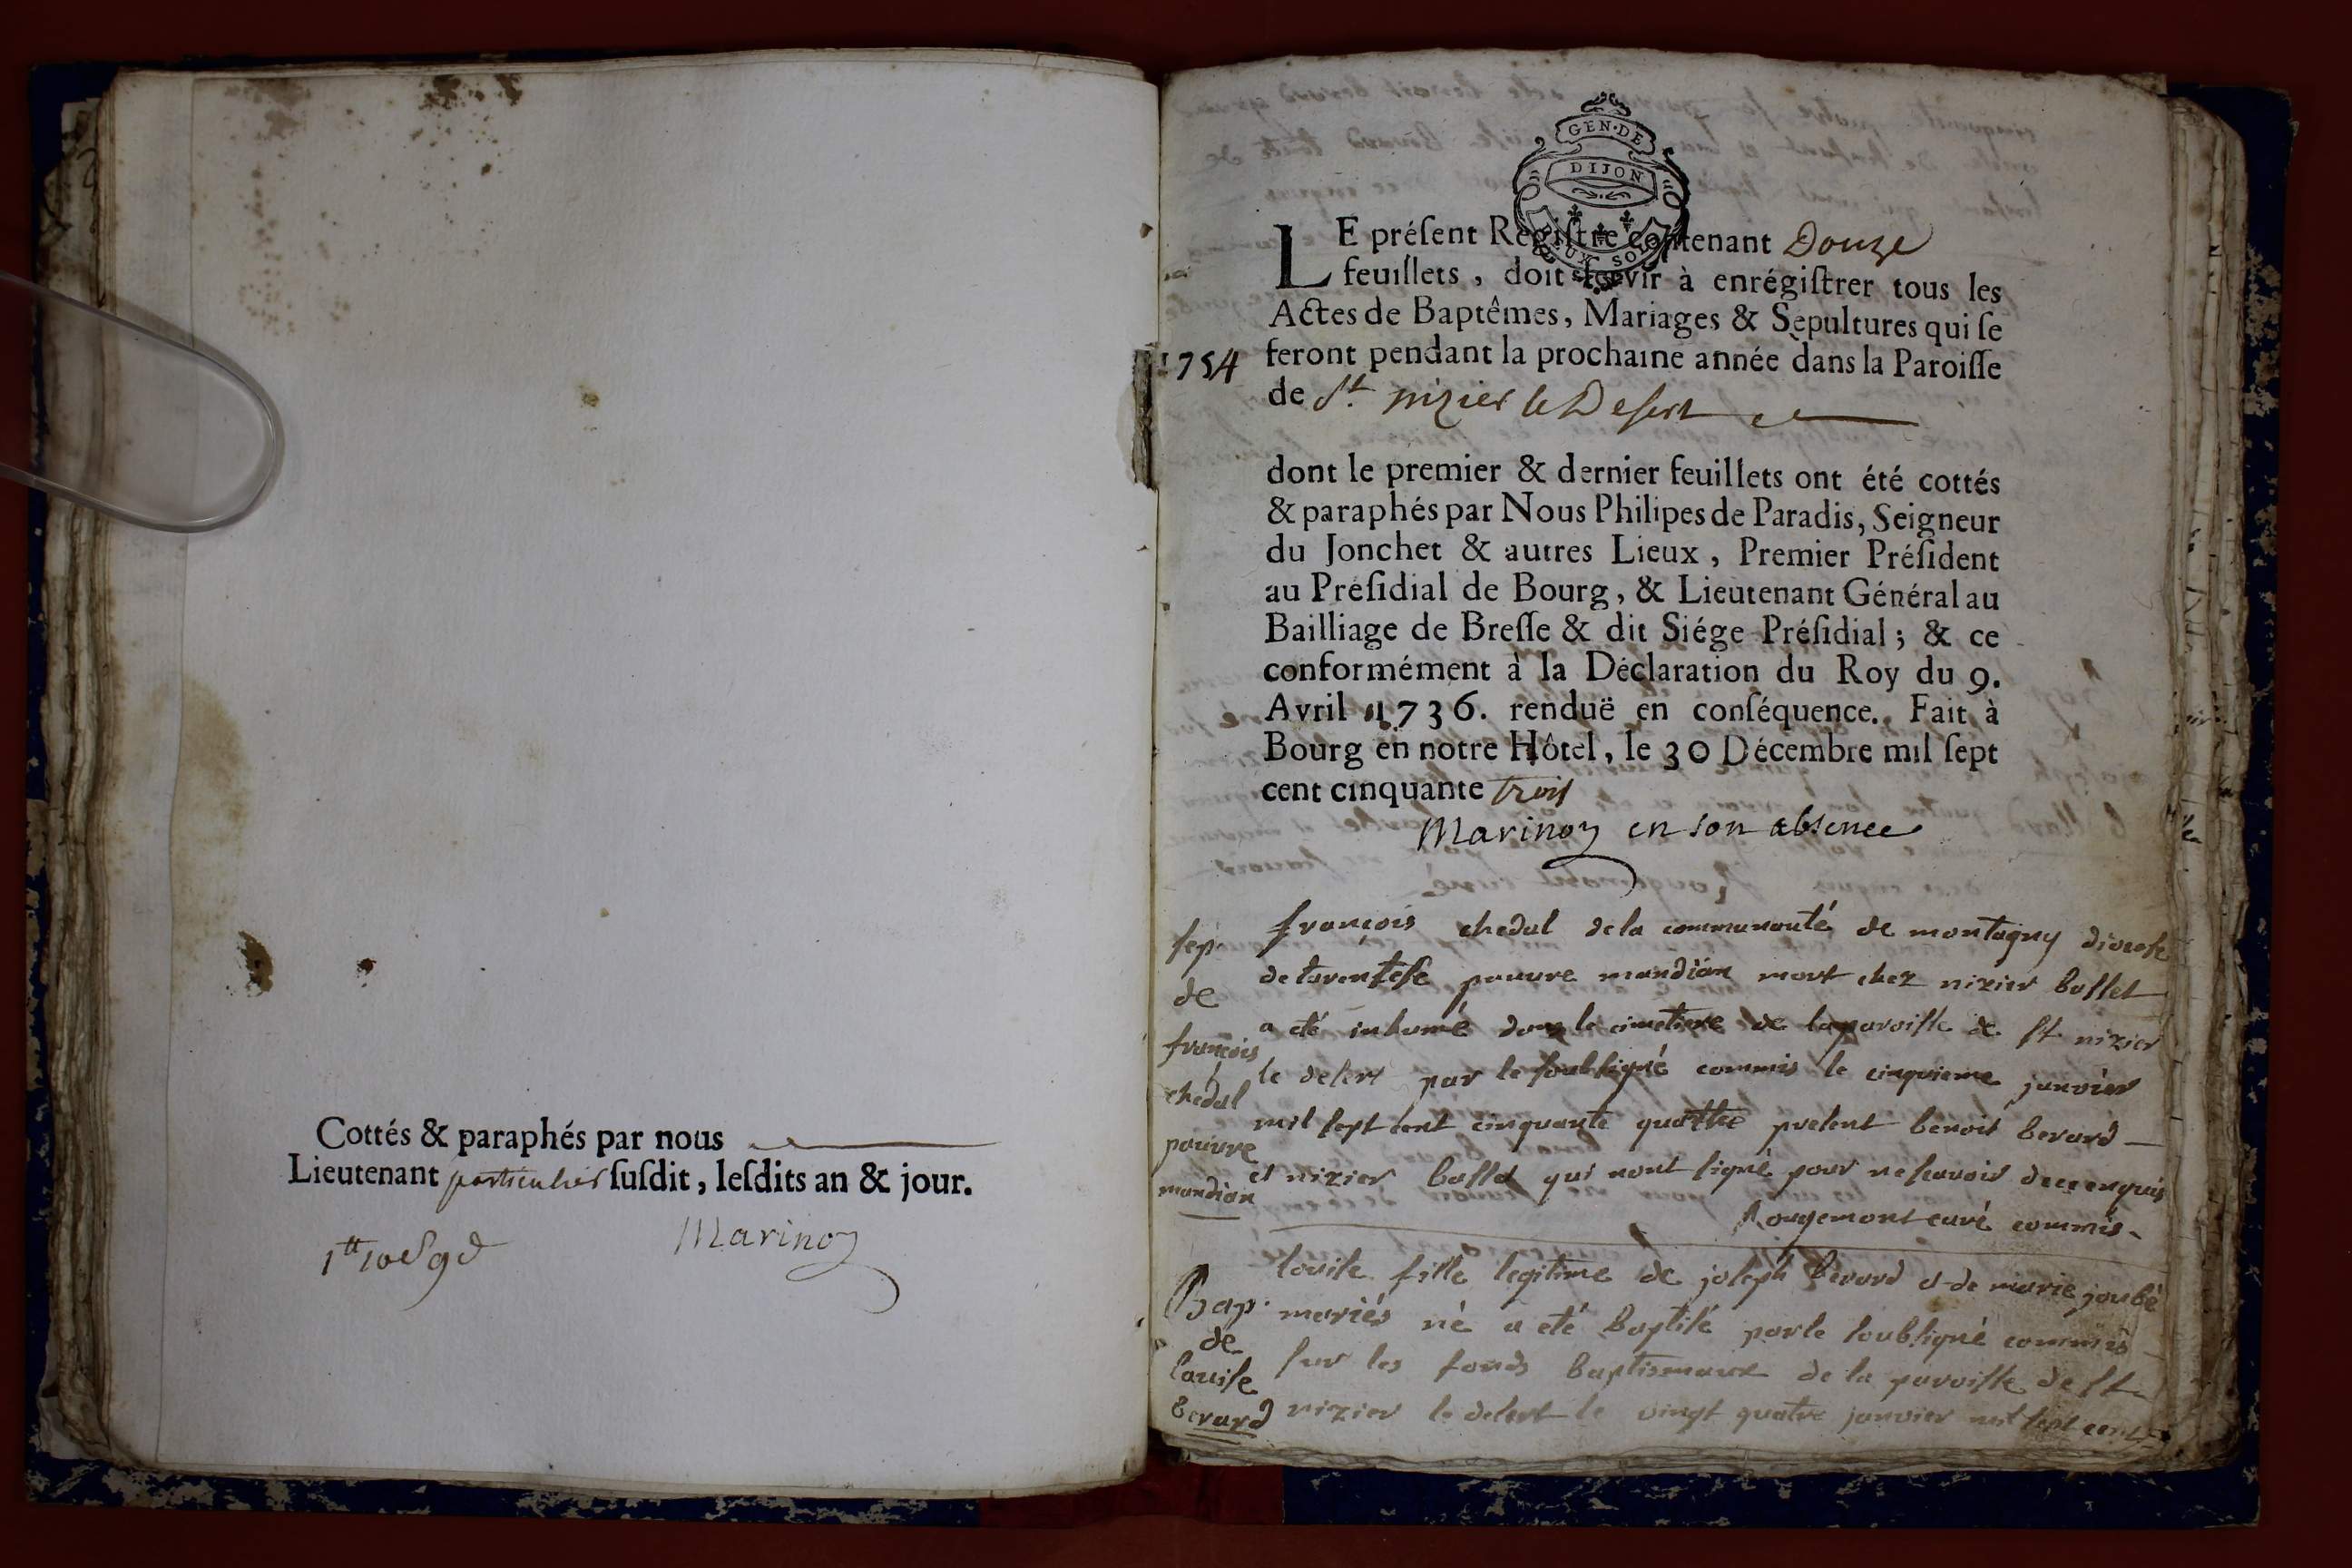 Cottés & paraphés par nous
Lieutenant particulier suſdit, leſdits an & jour.
Marinoz
GEN·DE
DIJON
DEUX SOLS
LE préſent Regiſtre contenant Douze
feuillets, doit ſervir à enrégiſtrer tous les
Actes de Baptêmes, Mariages & Sepultures qui ſe
1754
feront pendant la prochaine année dans la Paroiſſe
de St nizier le Desert
dont le premier & dernier feuillets ont été cottés
& paraphés par Nous Philipes de Paradis, Seigneur
du Jonchet & autres Lieux, Premier Préſident
au Préſidial de Bourg, & Lieutenant Général au
Bailliage de Breſſe & dit Siége Préſidial; & ce
conformément à la Déclaration du Roy du 9.
Avril 1736. renduë en conſéquence. Fait à
Bourg en notre Hôtel, le 30 Décembre mil ſept
cent cinquante trois
Marinoz en son absence
ſep.
de
françois
chedal
pauvre
mandian
françois chedal de la communauté de montagny diocese
de tarentese pauvre mandian mort chez nizier bollet
a eté inhumé dans le cimetiere de la paroisse de st nizier
le desert par le soubsigné commis le cinquieme janvier
mil sept cent cinquante quattre present benoit berard
et nizier bollet qui nont signé pour ne scavoir de ce enquis
Rougemont curé commis
Bap.
de
louise
berard
louise fille legitime de joseph berard et de marie joubé
mariés né a eté baptisé par le soubsigné commis
sur les fonds baptismaux de la paroisse de st
nizier le desert le vingt quatre janvier mil sept cent